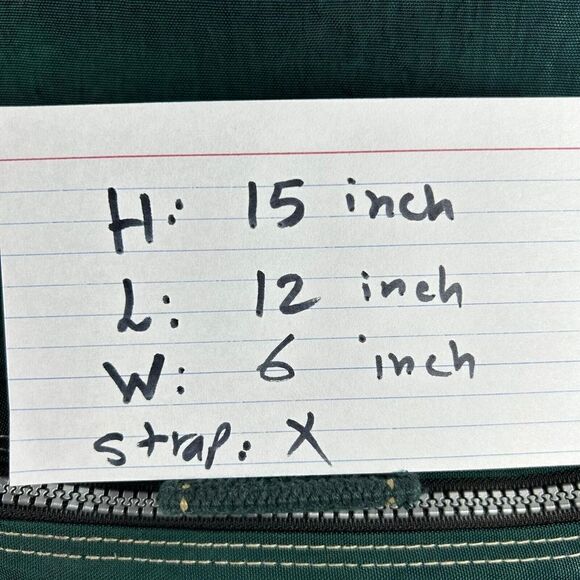 H: 15 inch
L: 12 inch
W: 6 inch
strap: X